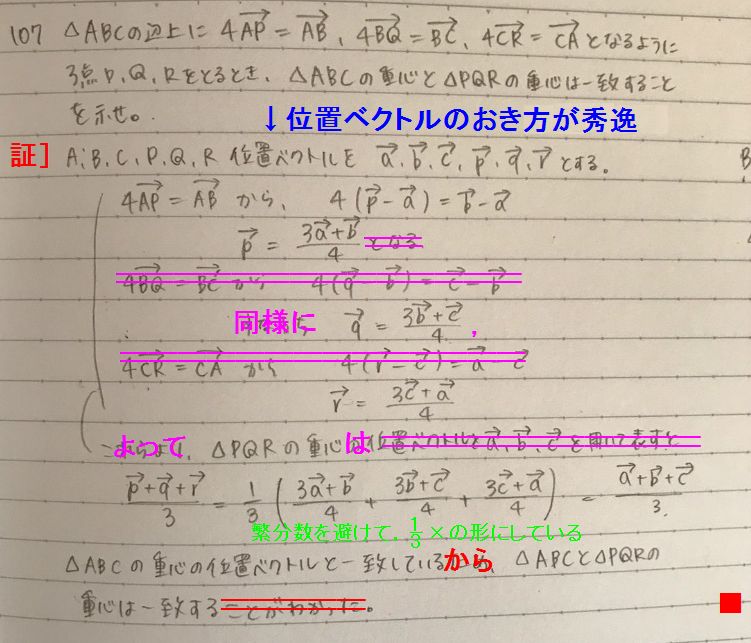 107 △ABCの辺上に 4AP→=AB→, 4BQ→=BC→, 4CR→=CA→となるように
3点P, Q, Rをとるとき、△ABCの重心と△PQRの重心は一致すること
を示せ。
↓位置ベクトルのおき方が秀逸
証] A, B, C, P, Q, R 位置ベクトルを a→, b→, c→, p→, q→, r→ とする。
4AP→=AB→ から、 4(p→-a→)=b→-a→
p→ = (3a→+b→)/4 となる
4BQ→=BC→ から 4(q→-b→)=c→-b→
同様に q→ = (3b→+c→)/4 ,
4CR→=CA→ から 4(r→-c→)=a→ c→
r→ = (3c→+a→)/4
よって、△PQRの重心は位置ベクトルを a→, b→, c→ を用いて表すと
(p→+q→+r→)/3 = 1/3((3a→+b→)/4 + (3b→+c→)/4 + (3c→+a→)/4) = (a→+b→+c→)/3
繁分数を避けて, 1/3×の形にしている
△ABCの重心の位置ベクトルと一致しているから、△ABCと△PQRの
重心は一致することがわかった。